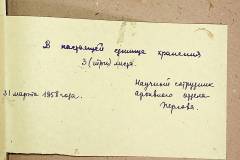 В настоящей единице хранения
3 (три) листа.
Научный сотрудник
архивного отдела
Перлова.
31 марта 1958 года.